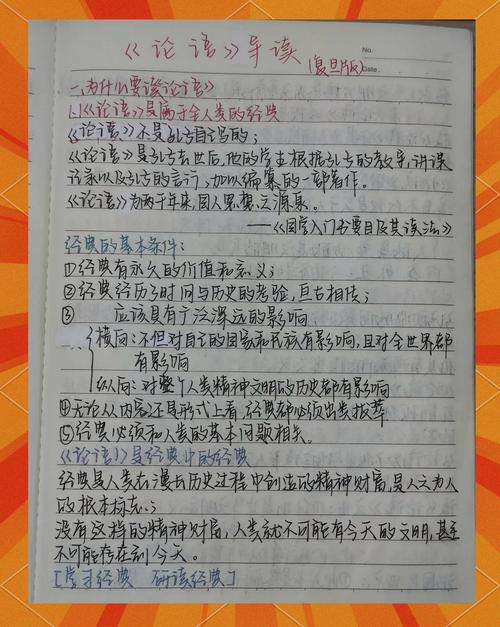 《论语》导读
(复旦版)
No.
Date.
一、为什么要读《论语》
1.《论语》是属于全人类的经典
《论语》不是孔子自己写的；
《论语》是孔子去世后，他的学生根据孔子的教导，讲课
记录以及孔子的言行，加以编纂的一部著作。
《论语》为两千年来，国人思想之源泉。
——《国学入门书要目及其读法》
经典的基本条件：
①经典有永久的价值和意义；
②经典经历了时间与历史的考验，亘古相传；
③ 应该具有广泛深远的影响
横向：不但对自己的国家和民族有影响，且对全世界都
有影响
纵向：对整个人类精神文明的历史都有影响
④无论从内容还是形式上看，经典都必须出类拔萃
⑤经典必须和人类的基本问题相关。
《论语》是经典中的经典
经典是人类在漫长历史过程中创造的精神财富，是人之为人
的根本标志；
没有这样的精神财富，人类就不可能有今天的文明，甚至
不可能存在到今天。
[学习经典 研读经典]